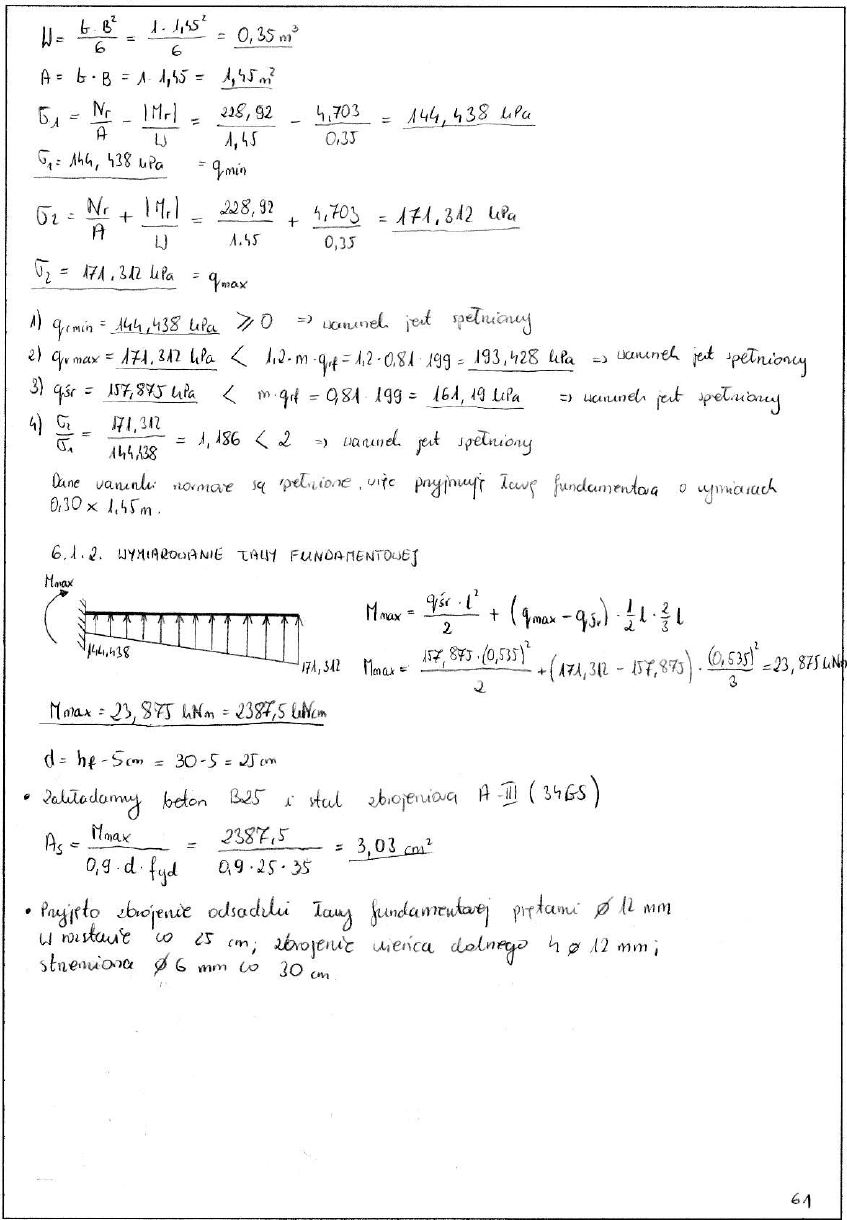 W = b·B²/6 = 1·1,45²/6 = 0,35 m³
A = b·B = 1·1,45 = 1,45 m²
σ₁ = Nr/A - |Mr|/W = 228,92/1,45 - 4,703/0,35 = 144,438 kPa
σ₁ = 144,438 kPa = q min
σ₂ = Nr/A + |Mr|/W = 228,92/1.45 + 4,703/0,35 = 171,312 kPa
σ₂ = 171,312 kPa = q max
1) qr min = 144,438 kPa ⩾ 0 => warunek jest spełniony
2) qr max = 171,312 kPa < 1,2·m·qrf = 1,2·0,81·199 = 193,428 kPa => warunek jest spełniony
3) qśr = 157,875 kPa < m·qrf = 0,81·199 = 161,19 kPa => warunek jest spełniony
4) σ₂/σ₁ = 171,312/144,438 = 1,186 < 2 => warunek jest spełniony
Dane warunki normowe są spełnione, więc przyjmuję ławę fundamentową o wymiarach
0,30 x 1,45 m.
6.1.2. WYMIAROWANIE ŁAWY FUNDAMENTOWEJ
Mmax
144,438
171,312
Mmax = qśr·l²/2 + (qmax - qśr)·1/2 l·2/3 l
Mmax = 157,875·(0,535)²/2 + (171,312 - 157,875)·(0,535)²/3 = 23,875 kNm
Mmax = 23,875 kNm = 2387,5 kNcm
d = hf - 5cm = 30 - 5 = 25 cm
• Zakładamy beton B25 i stal zbrojeniową A-III (34GS)
As = Mmax/0,9·d·fyd = 2387,5/0,9·25·35 = 3,03 cm²
• Przyjęto zbrojenie odsadzki ławy fundamentowej prętami ø 12 mm
w rozstawie co 25 cm; zbrojenie wieńca dolnego 4 ø 12 mm;
strzemiona ø 6 mm co 30 cm
61